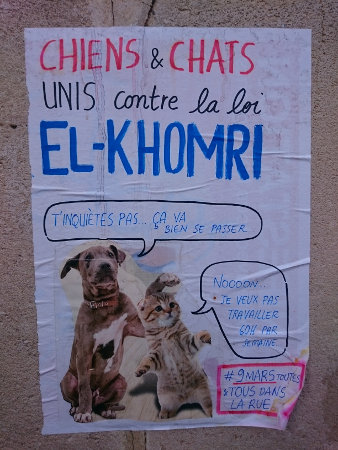 CHIENS & CHATS
UNIS contre la loi
EL-KHOMRI
T'INQUIÈTES PAS... ÇA VA
BIEN SE PASSER
NOOOON...
JE VEUX PAS
TRAVAILLER
60H PAR
SEMAINE.
# 9 MARS TOUTES
& TOUS DANS
LA RUE